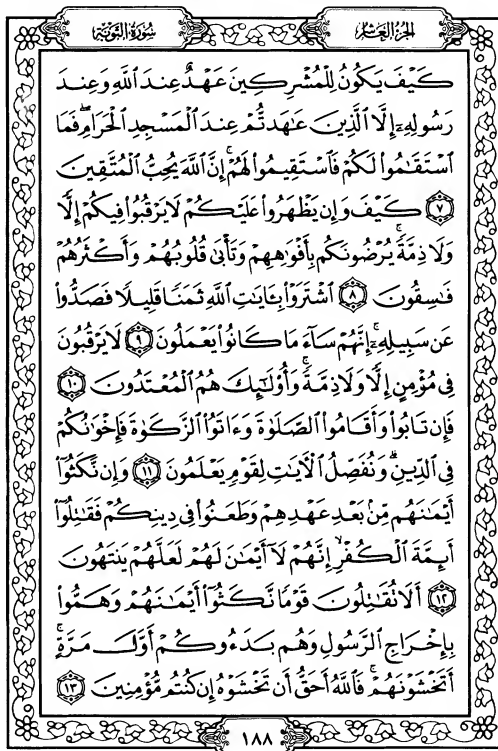 الجزء العاشر
سورة التوبة
كَيْفَ يَكُونُ لِلْمُشْرِكِينَ عَهْدٌ عِندَ اللَّهِ وَعِندَ
رَسُولِهِۦٓ إِلَّا الَّذِينَ عَٰهَدتُّمْ عِندَ الْمَسْجِدِ الْحَرَامِ ۖ فَمَا
اسْتَقَٰمُوا۟ لَكُمْ فَاسْتَقِيمُوا۟ لَهُمْ ۚ إِنَّ اللَّهَ يُحِبُّ الْمُتَّقِينَ
٧ كَيْفَ وَإِن يَظْهَرُوا۟ عَلَيْكُمْ لَا يَرْقُبُوا۟ فِيكُمْ إِلًّا
وَلَا ذِمَّةً ۚ يُرْضُونَكُم بِأَفْوَٰهِهِمْ وَتَأْبَىٰ قُلُوبُهُمْ وَأَكْثَرُهُمْ
فَٰسِقُونَ ٨ اشْتَرَوْا۟ بِـَٔايَٰتِ اللَّهِ ثَمَنًا قَلِيلًا فَصَدُّوا۟
عَن سَبِيلِهِۦٓ ۚ إِنَّهُمْ سَآءَ مَا كَانُوا۟ يَعْمَلُونَ ٩ لَا يَرْقُبُونَ
فِى مُؤْمِنٍ إِلًّا وَلَا ذِمَّةً ۚ وَأُو۟لَٰٓئِكَ هُمُ الْمُعْتَدُونَ ١٠
فَإِن تَابُوا۟ وَأَقَامُوا۟ الصَّلَوٰةَ وَءَاتَوُا۟ الزَّكَوٰةَ فَإِخْوَٰنُكُمْ
فِى الدِّينِ ۗ وَنُفَصِّلُ الْءَايَٰتِ لِقَوْمٍ يَعْلَمُونَ ١١ وَإِن نَّكَثُوٓا۟
أَيْمَٰنَهُم مِّنۢ بَعْدِ عَهْدِهِمْ وَطَعَنُوا۟ فِى دِينِكُمْ فَقَٰتِلُوٓا۟
أَئِمَّةَ الْكُفْرِ ۙ إِنَّهُمْ لَآ أَيْمَٰنَ لَهُمْ لَعَلَّهُمْ يَنتَهُونَ
١٢ أَلَا تُقَٰتِلُونَ قَوْمًا نَّكَثُوٓا۟ أَيْمَٰنَهُمْ وَهَمُّوا۟
بِإِخْرَاجِ الرَّسُولِ وَهُم بَدَءُوكُمْ أَوَّلَ مَرَّةٍ ۚ
أَتَخْشَوْنَهُمْ ۚ فَاللَّهُ أَحَقُّ أَن تَخْشَوْهُ إِن كُنتُم مُّؤْمِنِينَ ١٣
١٨٨